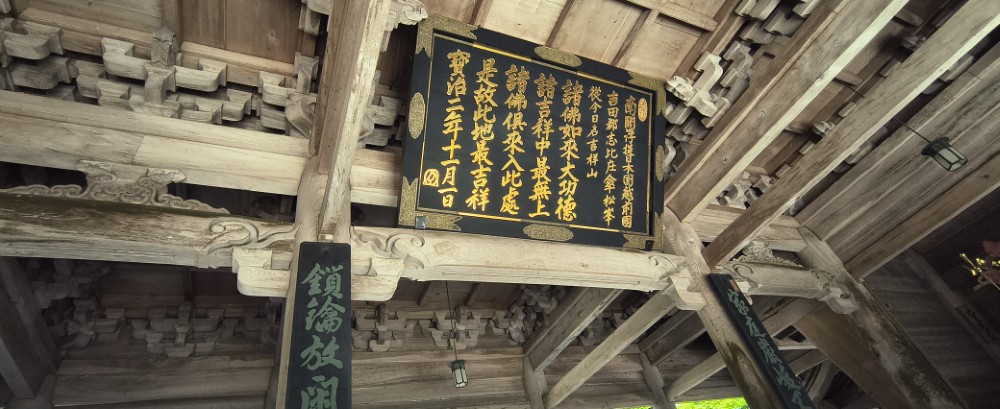 南閻浮提日本國越前國
吉田郡志比庄傘松峯
從今日名吉祥山
諸佛如來大功德
諸吉祥中最無上
諸佛俱來入此處
是故此地最吉祥
寶治二年十一月一日
鎖鑰放閑